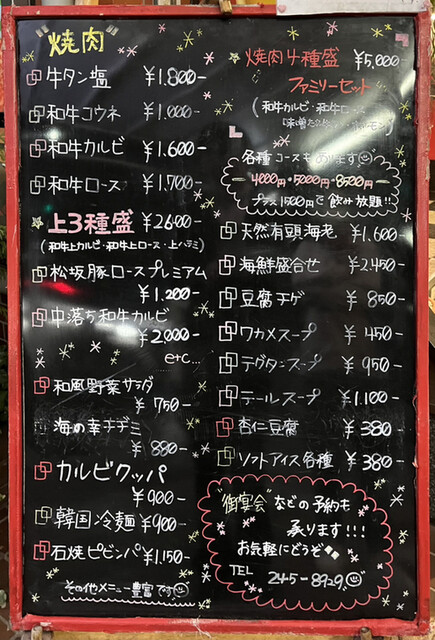 "焼肉"
牛タン塩 ¥1.800-
和牛コウネ ¥1.000-
和牛カルビ ¥1.600-
和牛ロース ¥1.700-
上3種盛 ¥2600-
(和牛上カルビ・和牛上ロース・上ハラミ)
松坂豚ロースプレミアム
¥1.200-
中落ち和牛カルビ
¥2,000-
etc...
和風野菜サラダ
¥750-
海の幸チヂミ
¥880-
カルビクッパ
¥900-
韓国冷麺 ¥900-
石焼ビビンバ ¥1.150-
その他メニュー豊富です
焼肉4種盛 ¥5,000-
ファミリーセット
(和牛カルビ・和牛ロース
ホルモン)
各種コースもあります
4000円・5000円・8500円-
プラス1500円で飲み放題!!
天然有頭海老 ¥1.600-
海鮮盛合せ ¥2.450-
豆腐チゲ ¥850-
ワカメスープ ¥450-
テグタンスープ ¥950-
テールスープ ¥1.100-
杏仁豆腐 ¥380-
ソフトアイス各種 ¥380-
"御宴会"などの予約も
承ります!!!
お気軽にどうぞ
TEL 245-8929